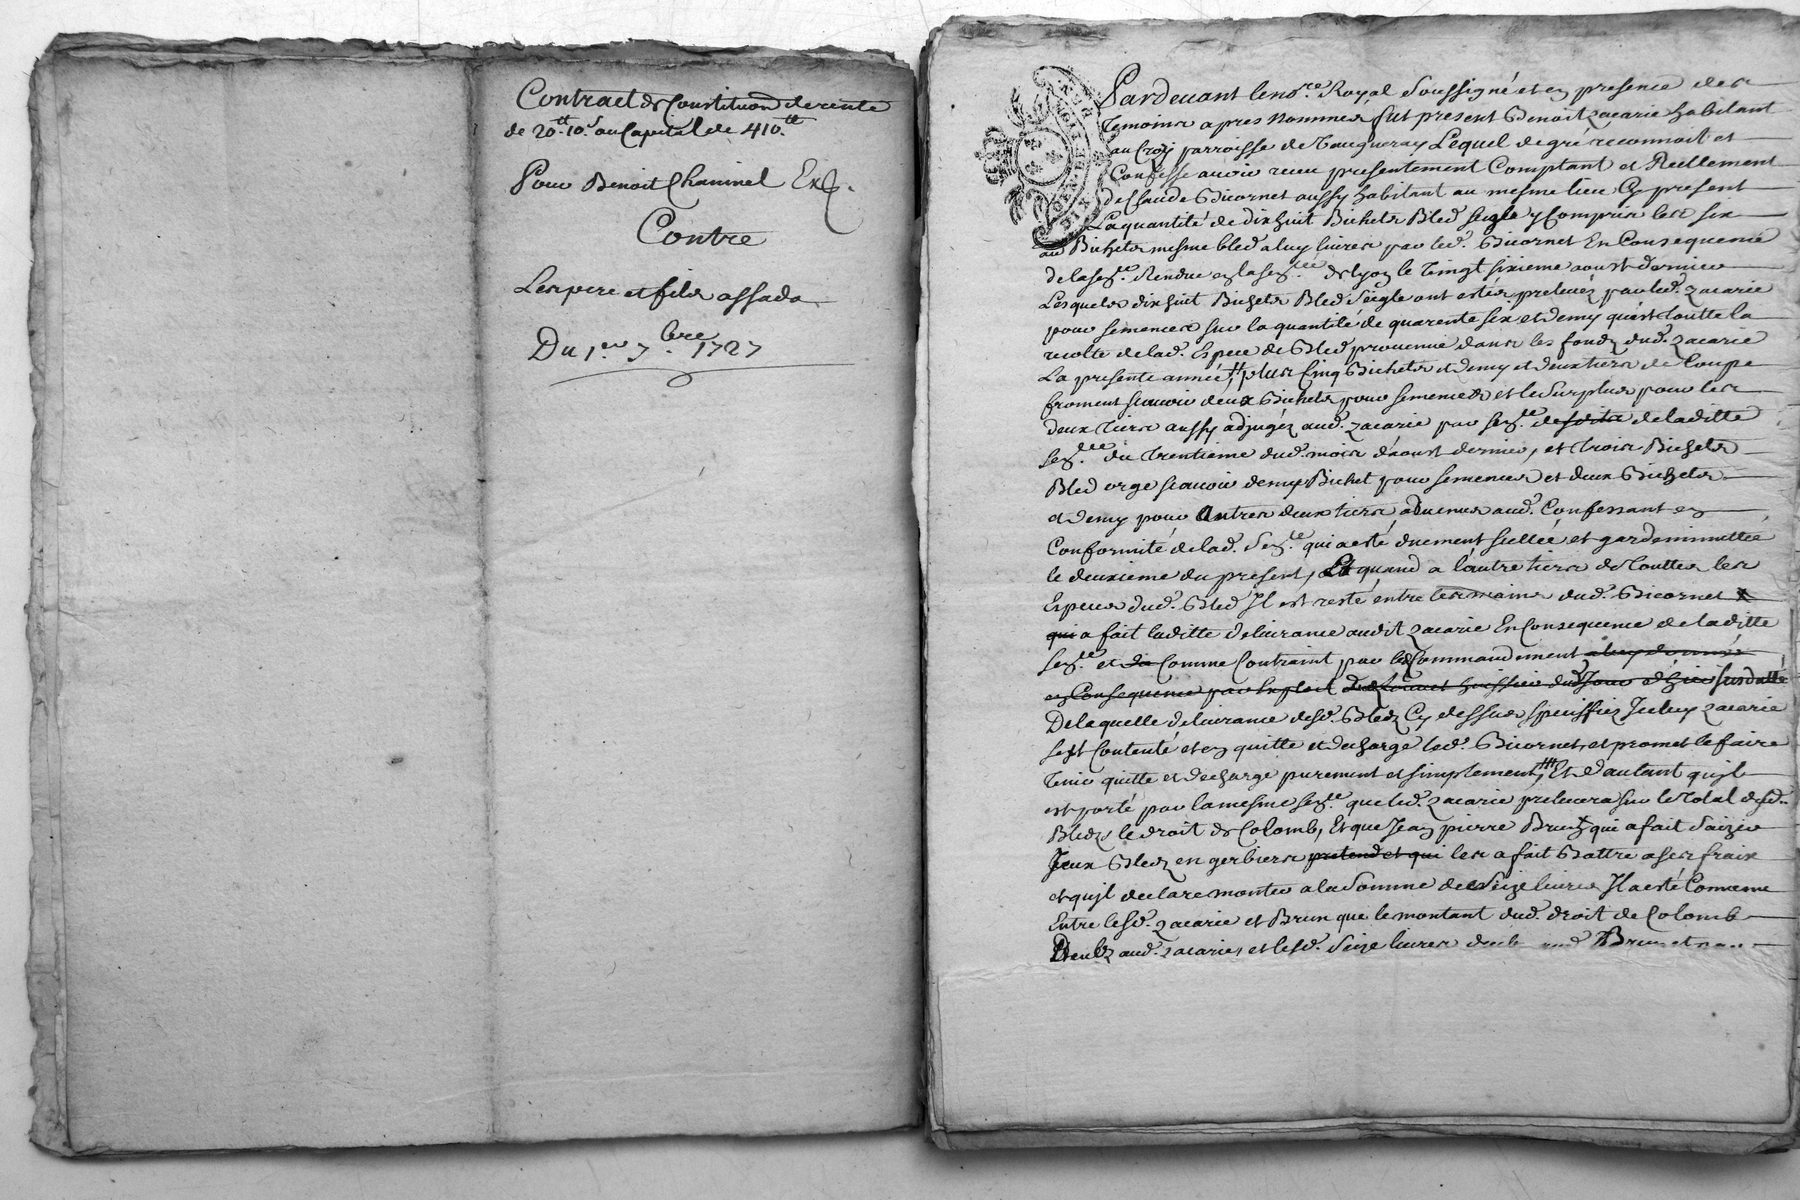 Contract de Constitution de rente
de 20.tt 10.s au Capital de 410.tt
Pour Benoit Chaminel
Contre
Les pere et fils assada
Du 1.er 7.bre 1727
Pardevant le no.re Royal soussigné et en presence des
temoins apres nommes fut present Benoit zacarie habitant
au Croy parroisse de Vaugneray Lequel de gré reconnoit et
Confesse avoir receu presentement Comptant et Reellement
de Claude Bicornet aussy habitant au mesme lieu Cy present
La quantité de dix huit Bichets Bled seigle y Compris les six
Bichets mesme bled a luy livrer par led. Bicornet En Consequence
de la sen.ce Rendue en la sen.cée de lyon le vingt sixieme aoust dernier
Lesquels dix huit Bichets Bled seigle ont estes prelevez par led. zacarie
pour semences sur la quantité de quarente six et demy qu'est toutte la
recolte de lad. Espece de Bled provenue dans les fonds dud. zacarie
La presente année, plus Cinq Bichets et demy et deux tiers de Coupe
froment scavoir deux Bichets pour semences et le surplus pour les
deux tiers aussy adjugéz aud. zacarie par sen.ce de laditte
sen.cée du trentieme dud. mois d'aoust dernier, et trois Bichets
Bled orge scavoir demy Bichet pour semences et deux Bichets
et demy pour Autres deux tiers advenus aud. Confessant en
Conformité de lad. Sen.ce qui a esté duement scellée et gardeminuttée
le deuxieme du present, Et quand a l'autre tiers de touttes les
Especes dud. Bled Il est resté entre les mains dud. Bicornet
qui a fait laditte delivrance audit zacarie En Consequence de laditte
sen.ce et Comme Contraint par le Commandement a luy donné
en Consequence par Exploit susdatté
De laquelle delivrance desd. Bledz Cy dessus speciffiez Iceluy zacarie
sest Contenté et en quitte et decharge led. Bicornet, et promet le faire
tenir quitte et decharge purement et simplement, Et d'autant qu'il
est porté par la mesme sen.ce que led. zacarie prelevera sur le total desd.
Bledz le droit de Colomb, Et que Jean pierre Brun qui a fait saizir
Iceux Bledz en gerbiers pretend et qui les a fait Battre a ses fraix
et qu'il declare monter a la somme de seize livres Il a esté Convenu
Entre lesd. zacarie et Brun que le montant dud. droit de Colomb
aud. zacarie, et lesd. seize livres Brun et